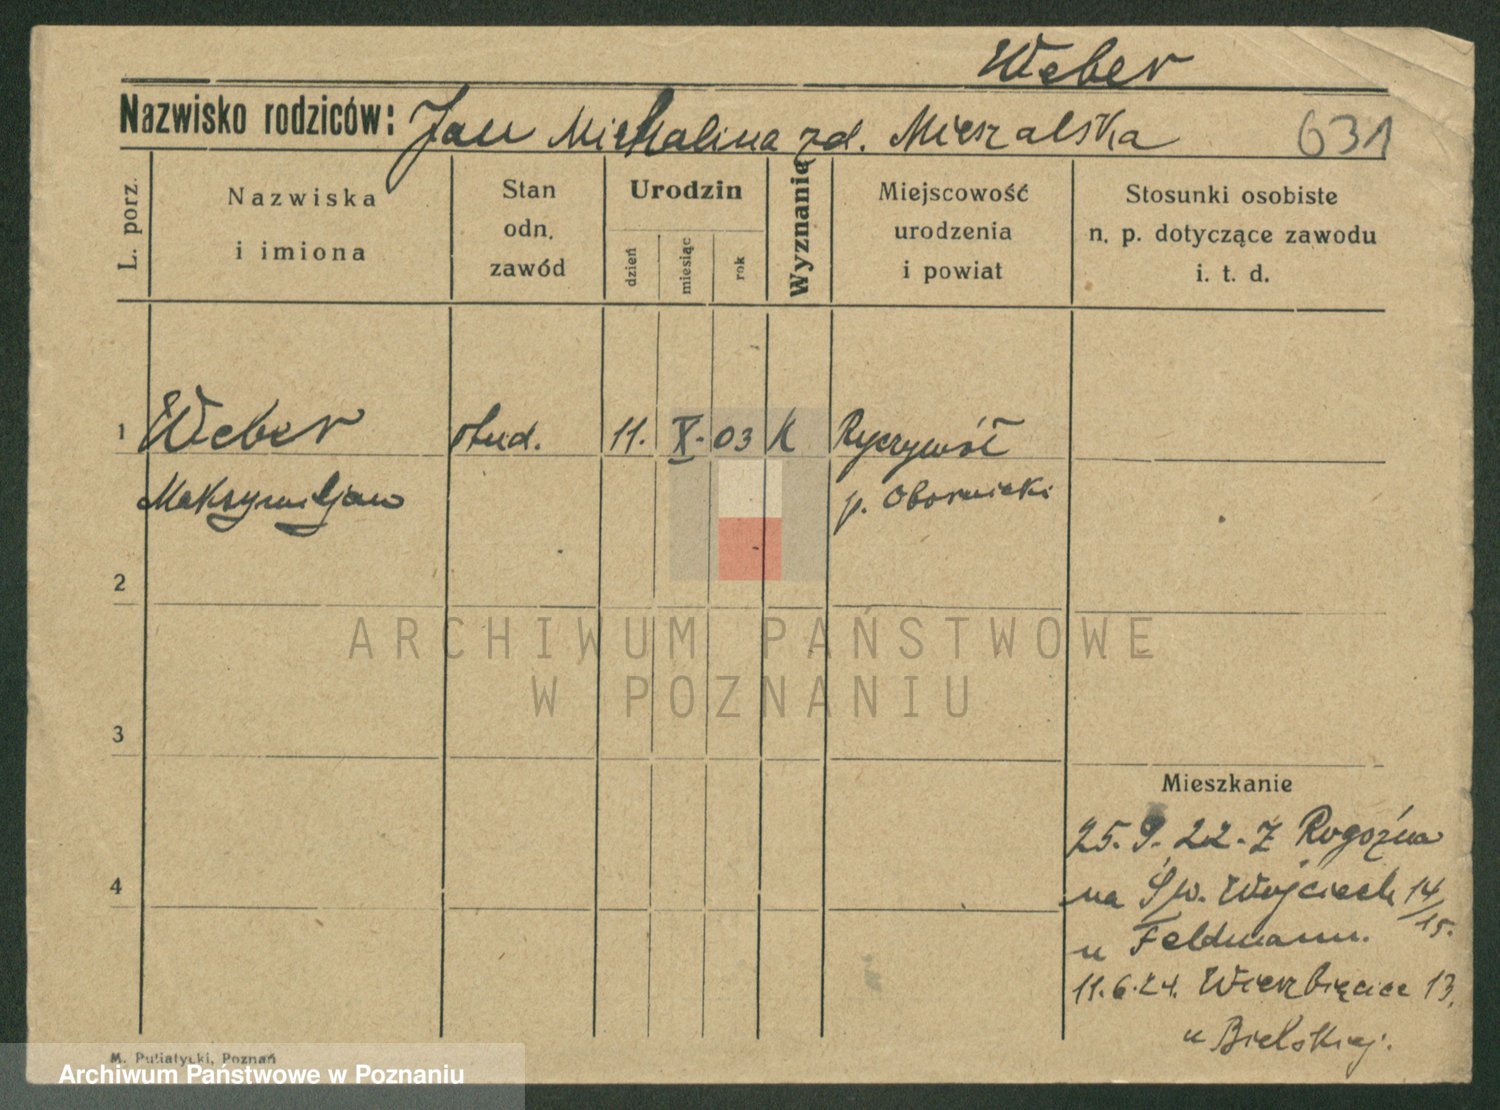 Weber
Nazwisko rodziców: Jan Michalina zd. Mieszalska
631
L. porz.
Nazwiska
i imiona
Stan
odn.
zawód
Urodzin
dzień
miesiąc
rok
Wyznanię
Miejscowość
urodzenia
i powiat
Stosunki osobiste
n. p. dotyczące zawodu
i. t. d.
1 Weber stud. 11. X. 03 K Ryczywół
Maksymiljan p. Obornicki
2
ARCHIWUM PAŃSTWOWE
W POZNANIU
3
Mieszkanie
25. 9. 22. Z Rogoźna
4
na Św. Wojciech 14/15.
u Feldmann.
11.6.24. Wierzbięcice 13.
u Bielskiej.
M. Putiatycki, Poznań
Archiwum Państwowe w Poznaniu